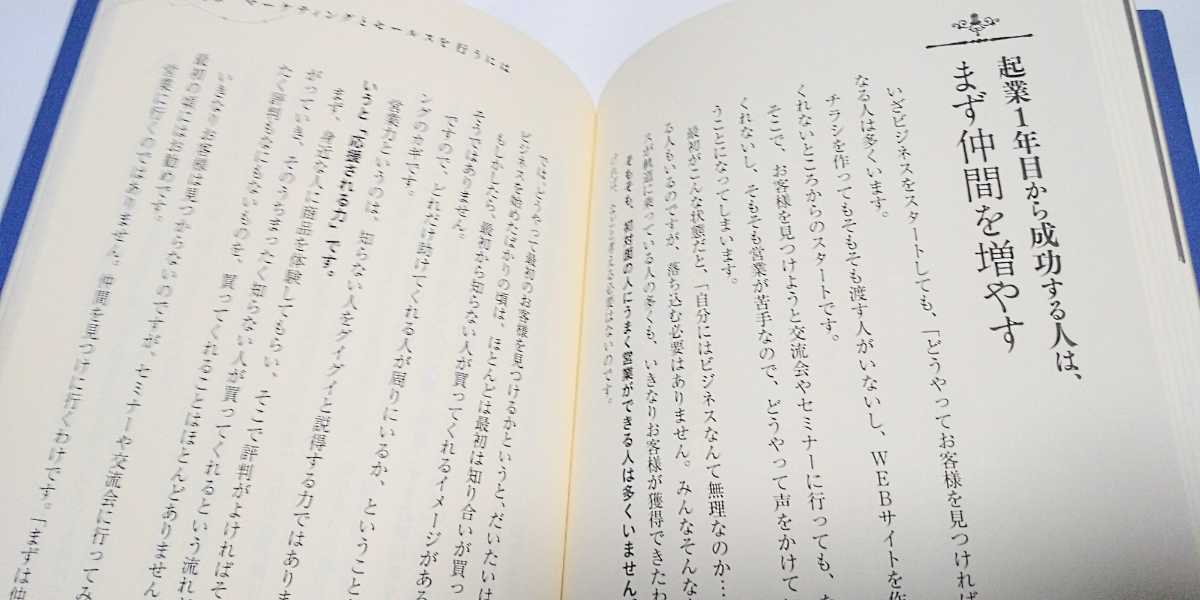 起業1年目から成功する人は、
まず仲間を増やす
いざビジネスをスタートしても、「どうやってお客様を見つければ
なる人は多くいます。
チラシを作ってもそもそも渡す人がいないし、WEBサイトを作
くれないところからのスタートです。
そこで、お客様を見つけようと交流会やセミナーに行っても、
くれないし、そもそも営業が苦手なので、どうやって声をかけて
うことになってしまいます。
最初がこんな状態だと、「自分にはビジネスなんて無理なのか…
る人もいるのですが、落ち込む必要はありません。みんなそんな
スが軌道に乗っている人の多くも、いきなりお客様が獲得できたわ
そもそも、初対面の人にうまく営業ができる人は多くいません
必要はないのです。
マーケティングとセールスを行うには
ではどうやって最初のお客様を見つけるかというと、だいたいは
ビジネスを始めたばかりの頃は、ほとんどは最初は知り合いが買っ
もしかしたら、最初から知らない人が買ってくれるイメージがある
そうではありません。
ですので、どれだけ助けてくれる人が周りにいるか、ということ
ングのカギです。
営業力というのは、知らない人をグイグイと説得する力ではありま
いうと「応援される力」です。
まず、身近な人に商品を体験してもらい、そこで評判がよければそ
がっていき、そのうちまったく知らない人が買ってくれるという流れ
たく評判もなにもないものを、買ってくれることはほとんどありません
いきなりお客様は見つからないのですが、セミナーや交流会に行ってみ
最初の頃にはお勧めです。
営業に行くのではありません。仲間を見つけに行くわけです。「まずは仲